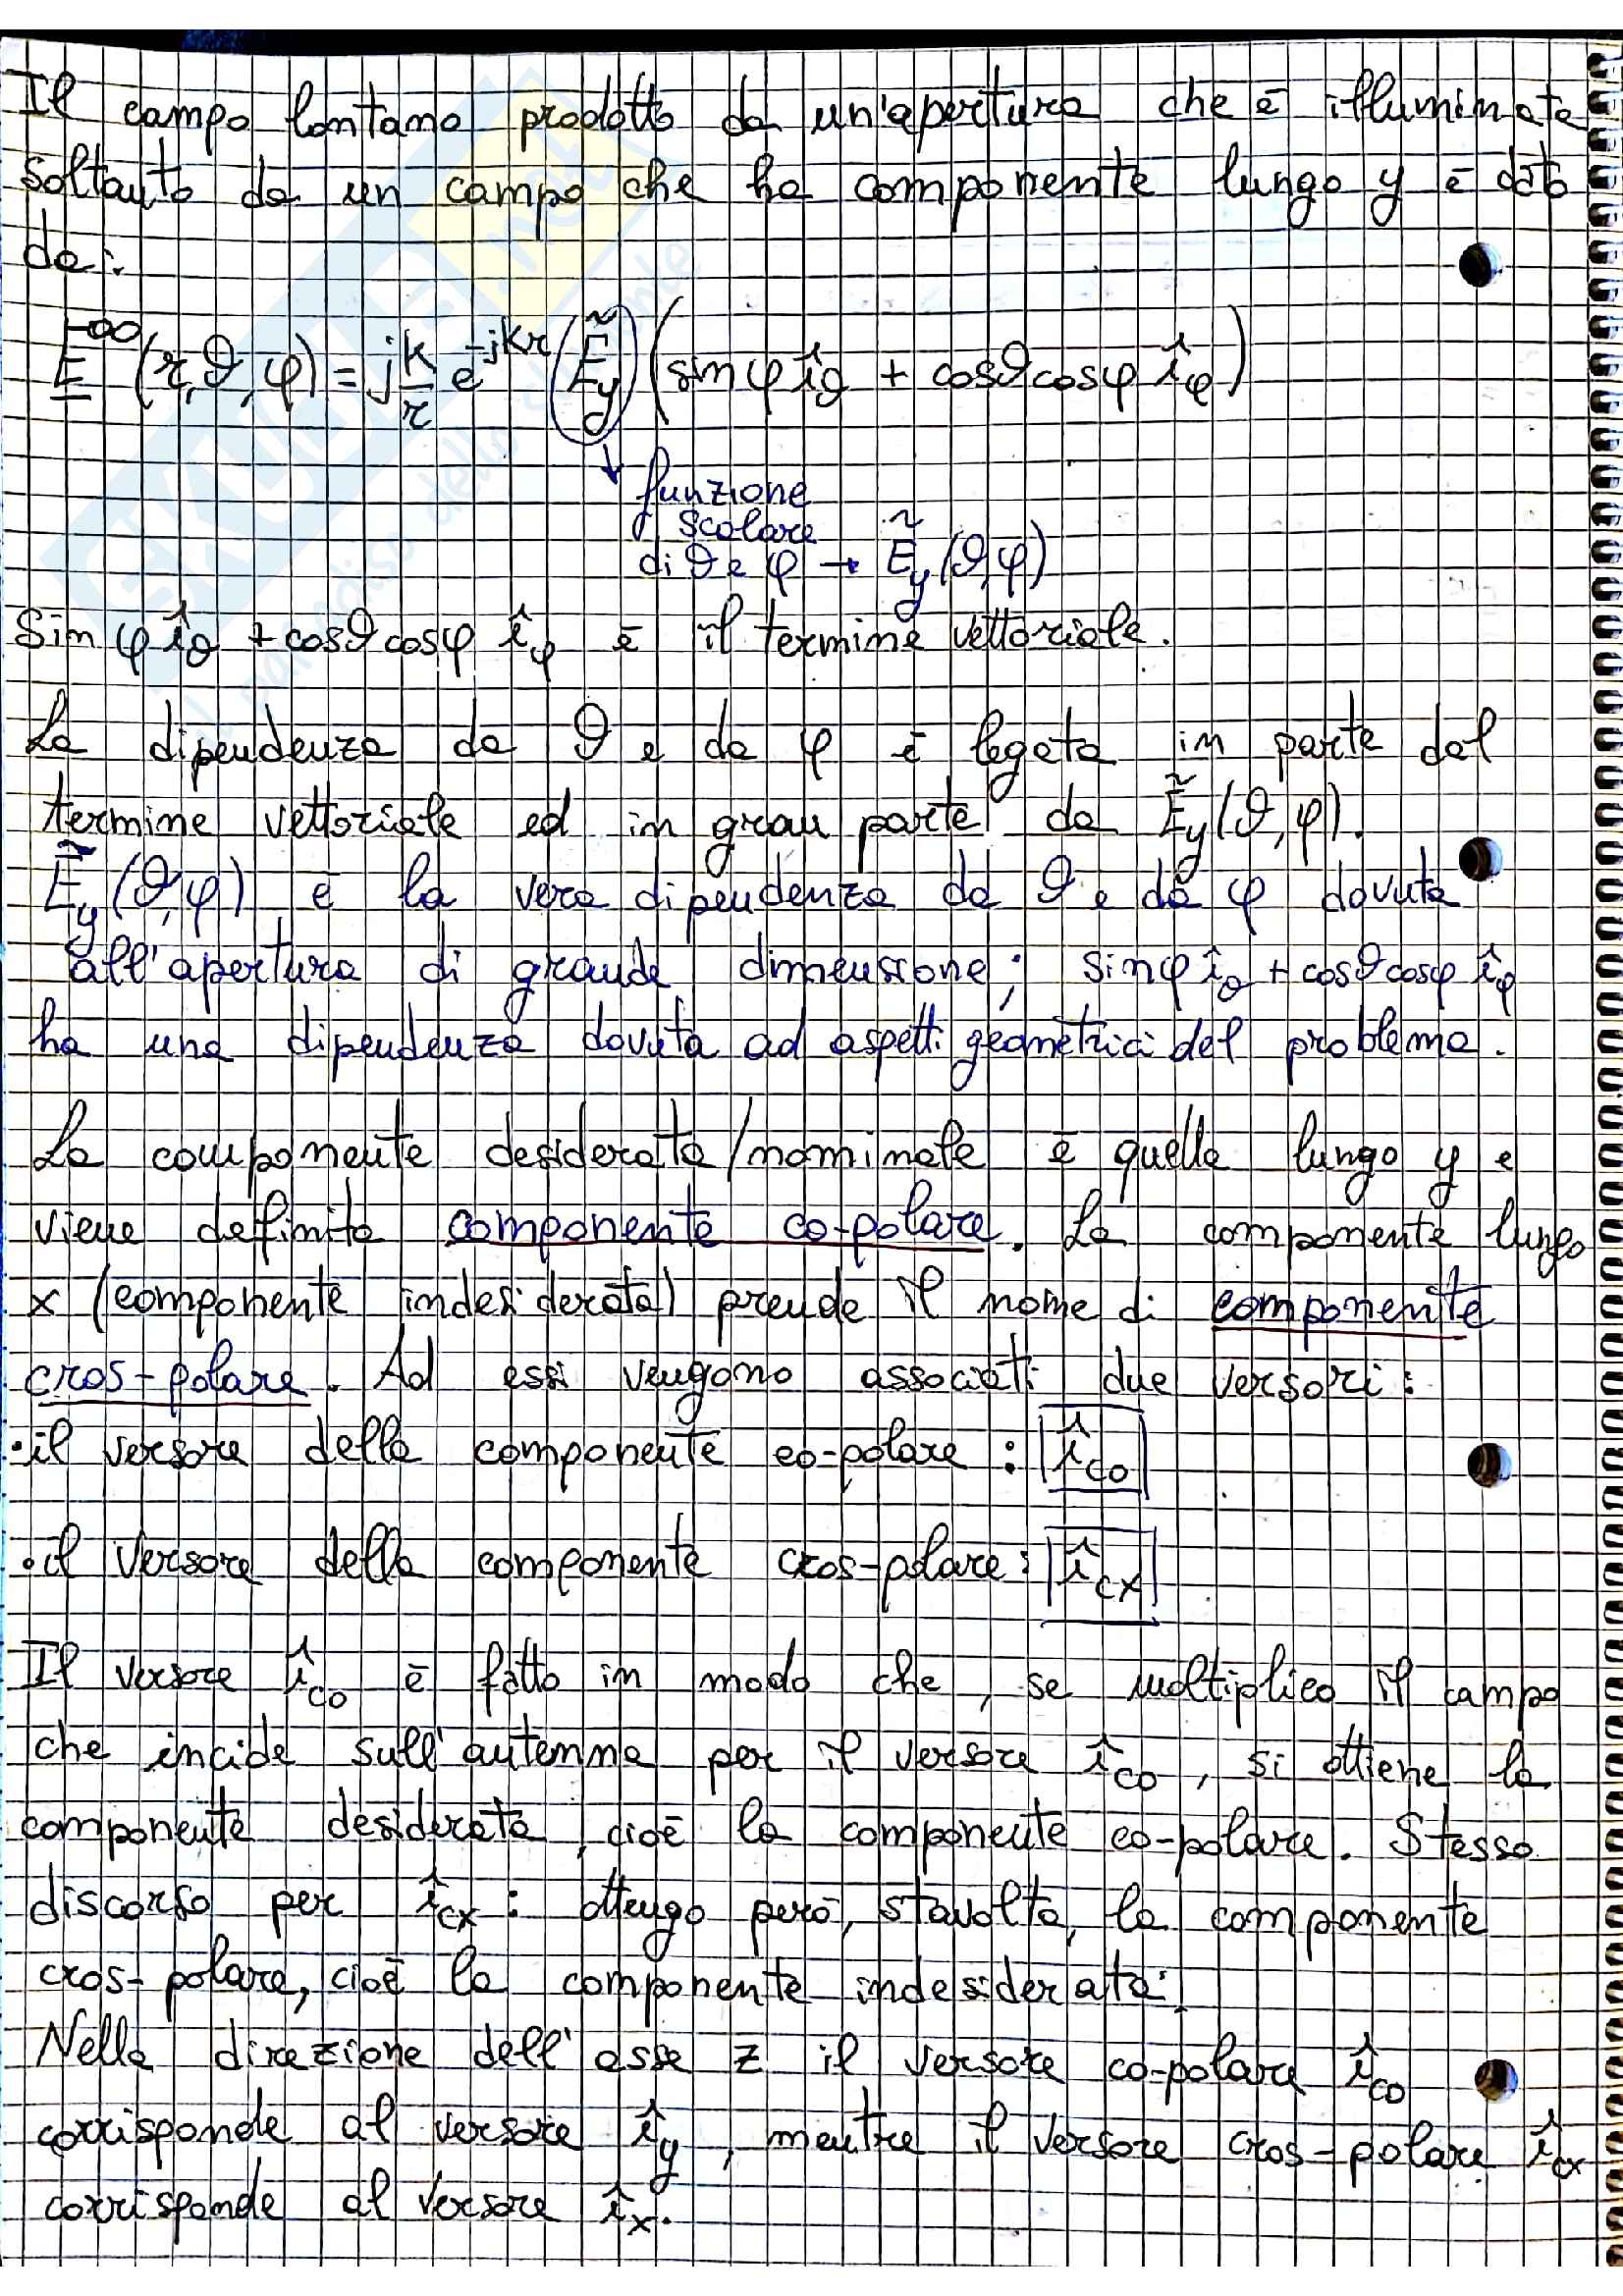 Il campo lontano prodotto da un'apertura che è illuminata
soltanto da un campo che ha componente lungo y è dato
da:
E^∞ (r,ϑ,φ) = j k/r e^-jkr (Ẽy) (sinφ îϑ + cosϑ cosφ îφ)
↓
funzione
scalare
di ϑ e φ → Ẽy(ϑ,φ)
Sinφ îϑ + cosϑ cosφ îφ è il termine vettoriale.
La dipendenza da ϑ e da φ è legata in parte dal
termine vettoriale ed in gran parte da Ẽy(ϑ,φ).
Ẽy(ϑ,φ) è la vera dipendenza da ϑ e da φ dovuta
all'apertura di grande dimensione; sinφ îϑ + cosϑ cosφ îφ
ha una dipendenza dovuta ad aspetti geometrici del problema.
La componente desiderata/nominale è quella lungo y e
viene definita componente co-polare. La componente lungo
x (componente indesiderata) prende il nome di componente
cros-polare. Ad essi vengono associati due versori:
• il versore della componente co-polare: îco
• il versore della componente cros-polare: îcx
Il versore îco è fatto in modo che, se moltiplico il campo
che incide sull'antenna per il versore îco, si ottiene la
componente desiderata, cioè la componente co-polare. Stesso
discorso per îcx: ottengo però, stavolta, la componente
cros-polare, cioè la componente indesiderata.
Nella direzione dell'asse z il versore co-polare îco
corrisponde al versore îy, mentre il versore cros-polare îcx
corrisponde al versore îx.
SKUOLA.net
il paradiso dello studente